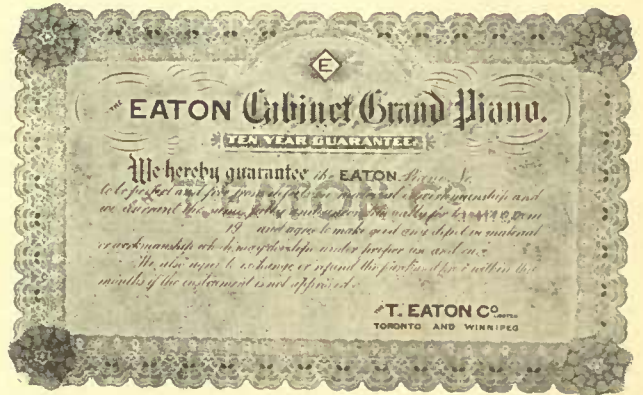 E
THE EATON Cabinet Grand Piano.
TEN YEAR GUARANTEE.
We hereby guarantee the EATON Piano No
to be perfect and free from defects in material and workmanship and
we warrant the same, fully and unconditionally for ten years from
19 and agree to make good any defect in material
or workmanship which may develope under proper use and care.
We also agree to exchange or refund the purchase price within
months if the instrument is not approved.
THE T. EATON CO. LIMITED
TORONTO AND WINNIPEG